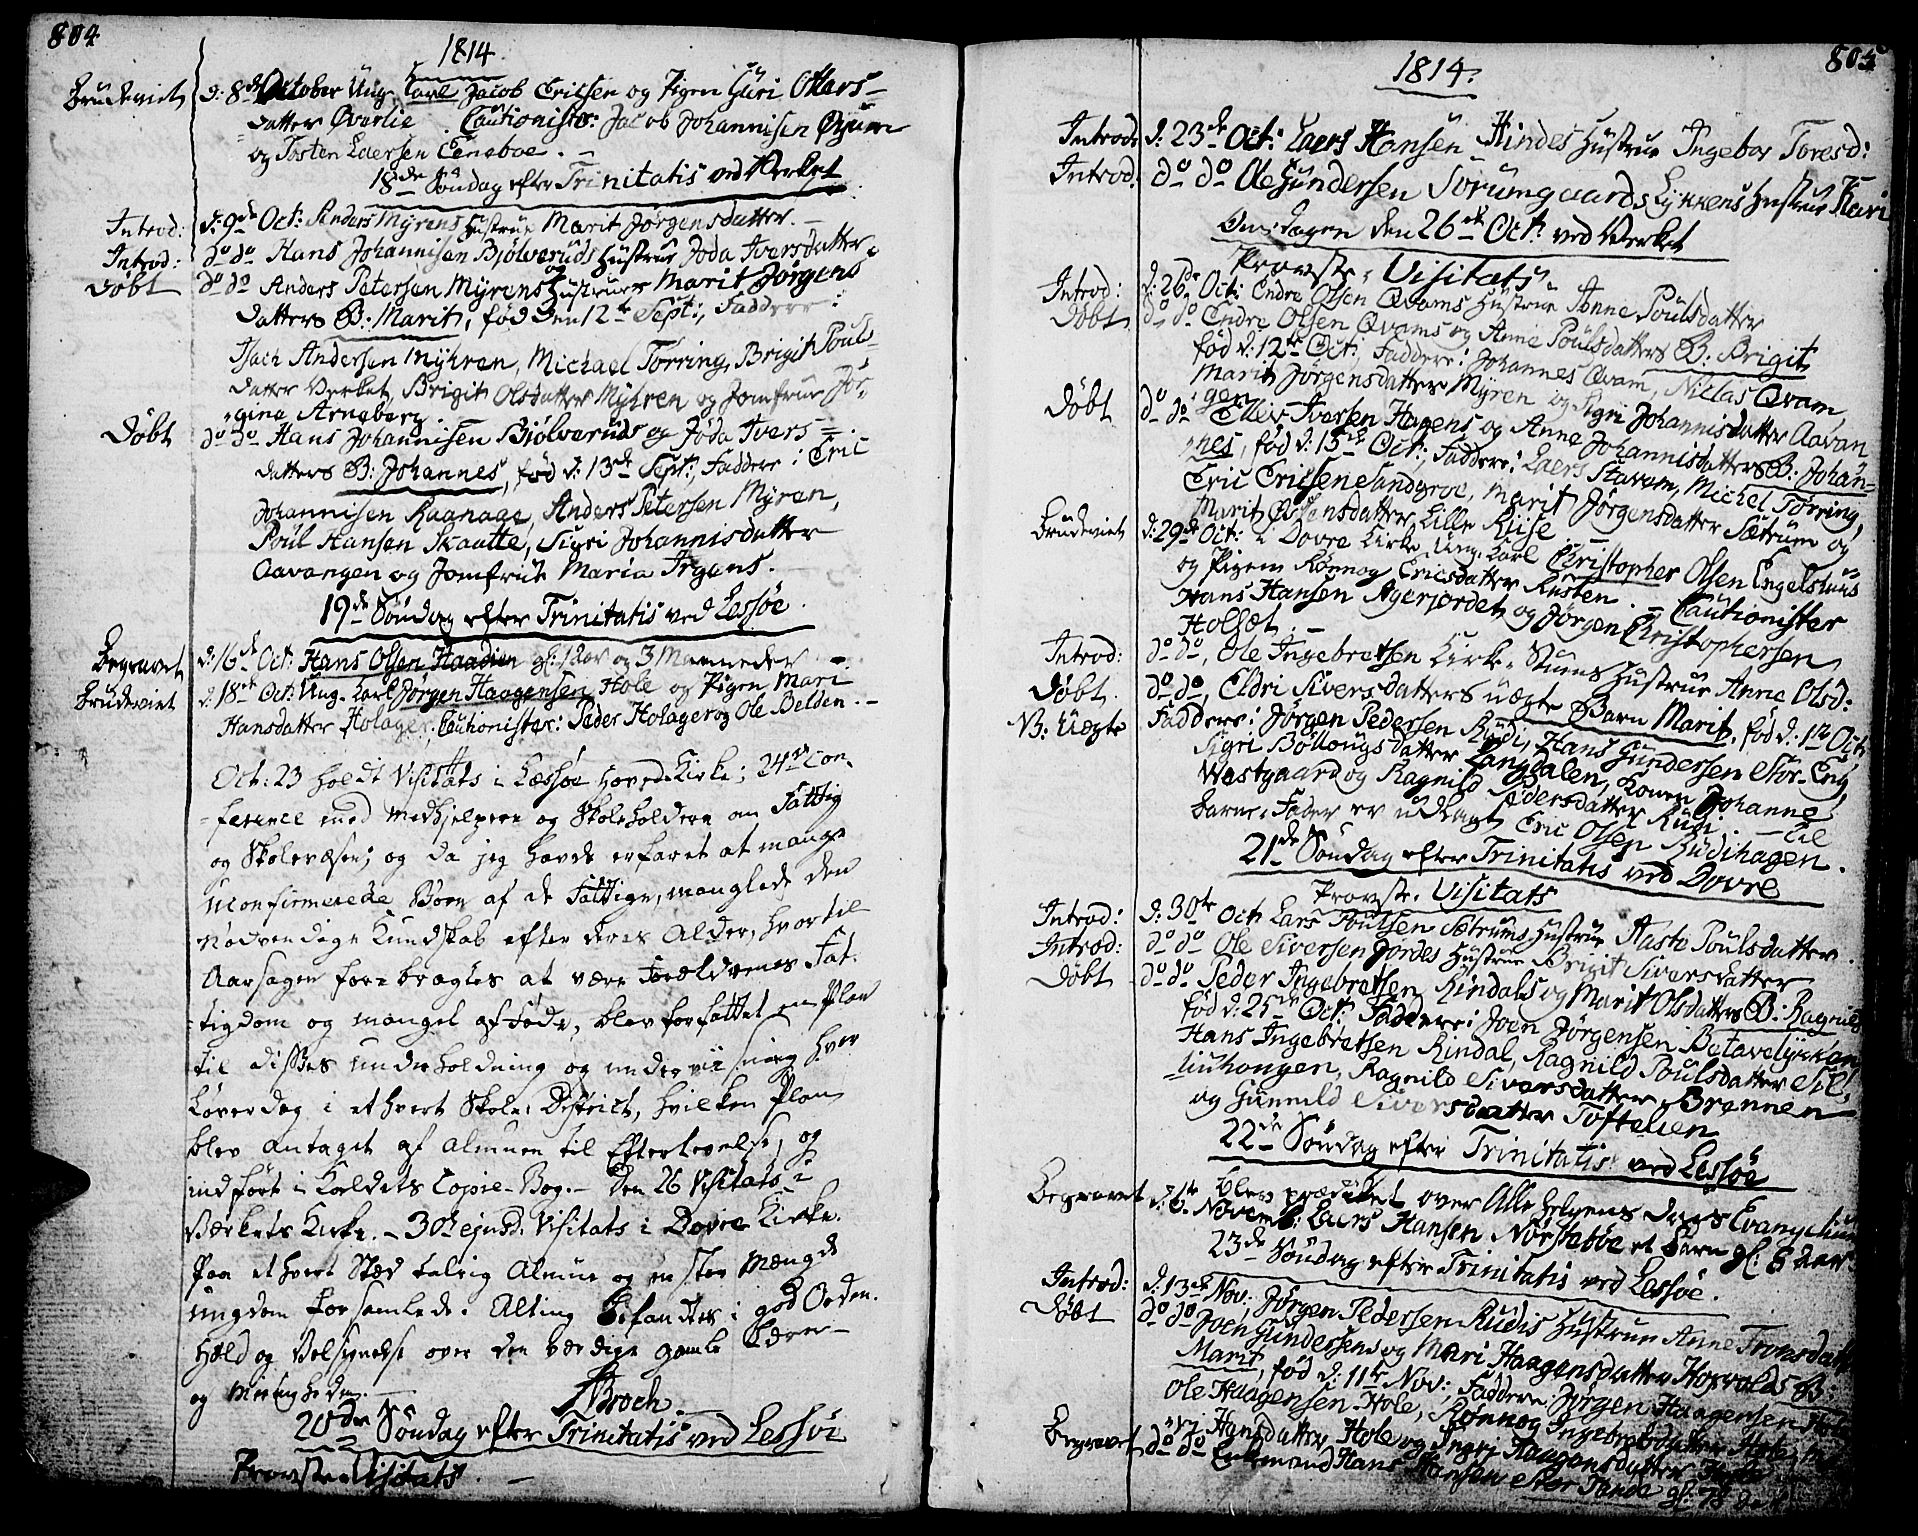 804
1814
Brudeviet d: 8de October Ung Carl Jacob Ericsen og Pigen Guri Ottars-
datter Øverlie. Cautionister: Jacob Johannisen Øyum
og Tosten Laersen Eeneboe. -
18de Søndag efter Trinitatis ved Verket
Introd: d: 9de Oct: Anders Myrens Hustrue Marit Jørgensdatter. -
Introd: do do Hans Johannisen Bjølveruds Hustrue Joda Iversdatter
Døbt do do Anders Petersen Myrens og Hustrues Marit Jørgens
datters B: Marit, fød den 12te Sept:, Faddere:
Isach Andersen Myhren, Michael Torring, Brigit Pouls-
datter Verket, Brigit Olsdatter Myhren og Jomfrue Jør-
gine Arneberg
Døbt do do Hans Johannisen Bjølveruds og Joda Ivers-
datters B: Johannes, fød d: 13de Sept:, Faddere: Eric
Johannisen Raanaae, Anders Petersen Myren,
Poul Hansen Skaatte, Sigri Johannisdatter
Aavangen og Jomfrue Maria Irgens.
19de Søndag efter Trinitatis ved Lessøe
Begravet d: 16de Oct: Hans Olsen Haadien gl: 1 Aar og 3 Maaneder -
Brudeviet d: 18de Oct: Ung Carl Jørgen Haagensen Hole og Pigen Mari
Hansdatter Holager, Cautionister: Peder Holager og Ole Belden. -
Oct: 23 holdt Visitats i Lessøe Hoved-Kirke; 24de Con-
ference med Medhjelpere og Skoleholdere om Fattig
og Skolevæsen; og da jeg havde erfaret at mange
uconfirmerede Børn af de Fattige, manglede den
nødvendige Kundskab efter deres Alder, hvortil
Aarsagen forebragtes at være Forældrenes Fat-
tigdom og mangel af Føde, blev forfattet en Plan
til disses underholdning og underviisning hver
Løverdag i ethvert Skole-District, hvilken Plan
blev antaget af Almuen til Efterlevelse, og
indført i Kaldets Copie-Bog. - Den 26 Visitats i
Værkets Kirke. - 30te ejusd. Visitats i Dovre Kirke.
Paa ethvert Stæd talrig Almue og en stor Mængde
ungdom forsamlede. Alting befandtes i god Orden.
Held og Velsignelse over den værdige gamle Lærer
og Menigheden. -
Broch.
20de Søndag efter Trinitatis ved Lessøe
Provste Visitats. -
805
1814.
Introd: d: 23de Oct: Laers Hansen Hindes Hustrue Ingebor Toresd:
Introd: do do Ole Gundersen Sorumgaards Lykkens Hustrue Kari
Onsdagen den 26de Oct: ved Verket
Provste-Visitats.
Introd: d: 26de Oct: Endre Olsen Qvams Hustrue Anne Poulsdatter
Døbt do do Endre Olsen Qvams og Anne Poulsdatters B: Brigit
fød d: 12te Oct:, Faddere: Johannes Qvam, Niclas Qvam
Marit Jørgensdatter Myren og Sigri Johannisdatter Aavan
gen
Døbt do do Ellev Iversen Hagens og Anne Johannisdatters B: Johan-
nes, fød d: 15de Oct:, Faddere: Laers Stavem, Michel Torring,
Eric Ericsen Sandgroe, Marit Jørgensdatter Sætrum og
Marit Østensdatter Lille Riise
Brudeviet d: 29de Oct: i Dovre Kirke Ung Carl Christopher Olsen Engelshuus
og Pigen Rønnog Ericsdatter Rusten. - Cautionister
Hans Hansen Agerjordet og Jørgen Christophersen
Holsæt. -
Introd: do do, Ole Ingebretsen Kirke-Stuens Hustrue Anne Olsd:
Døbt. do do, Eldri Siversdatters uægte Barn Marit, fød d: 1te Oct:
NB: Uægte Faddere: Jørgen Pedersen Rudi, Hans Gundersen Stor-Eng,
Sigri Bollougsdatter Langdalen, Konen Johanne
Westgaard og Ragnild Pedersdatter Rudi. - Til
Barne-Fader er udlagt Eric Olsen Rudihagen.
21de Søndag efter Trinitatis ved Dovre
Provste Visitats
Introd: d: 30te Oct: Lars Poulsen Sætrums Hustrue Aaste Poulsdatter
Introd: do do Ole Siversen Jordes Hustrue Brigit Siversdatter
Døbt do do Peder Ingebretsen Rindals og Marit Olsdatters B: Ragnild
fød d: 25de Oct: Faddere: Joen Jørgensen Betavelykken,
Hans Ingebretsen Rindal, Ragnild Poulsdatter Sil-
liuhougen, Ragnild Siversdatter Brennen
og Gunnild Siversdatter Toftelien
22de Søndag efter Trinitatis ved Lessøe
blev prædiket over Alle Helgens Dags Evangelium
Begravet d: 6te Novemb: Laers Hansen Norstebøe et Barn gl: 8 Aar
23de Søndag efter Trinitatis ved Lessøe.
Introd: d: 13de Nov: Jørgen Pedersen Rudis Hustrue Anne Tronsdatt
Døbt do do Joen Gundersens og Mari Haagensdatter Horvolds B:
Marit, fød d: 11te Nov: Faddere: Jørgen Haagensen Hole
Ole Haagensen Hole, Rønnog Ingebretsdatter Hole,
Hansdatter Hole og Ingri Haagensdatter Hole
Begravet do do Enkemand Hans Hansen Stor Tande gl: 78 Aar